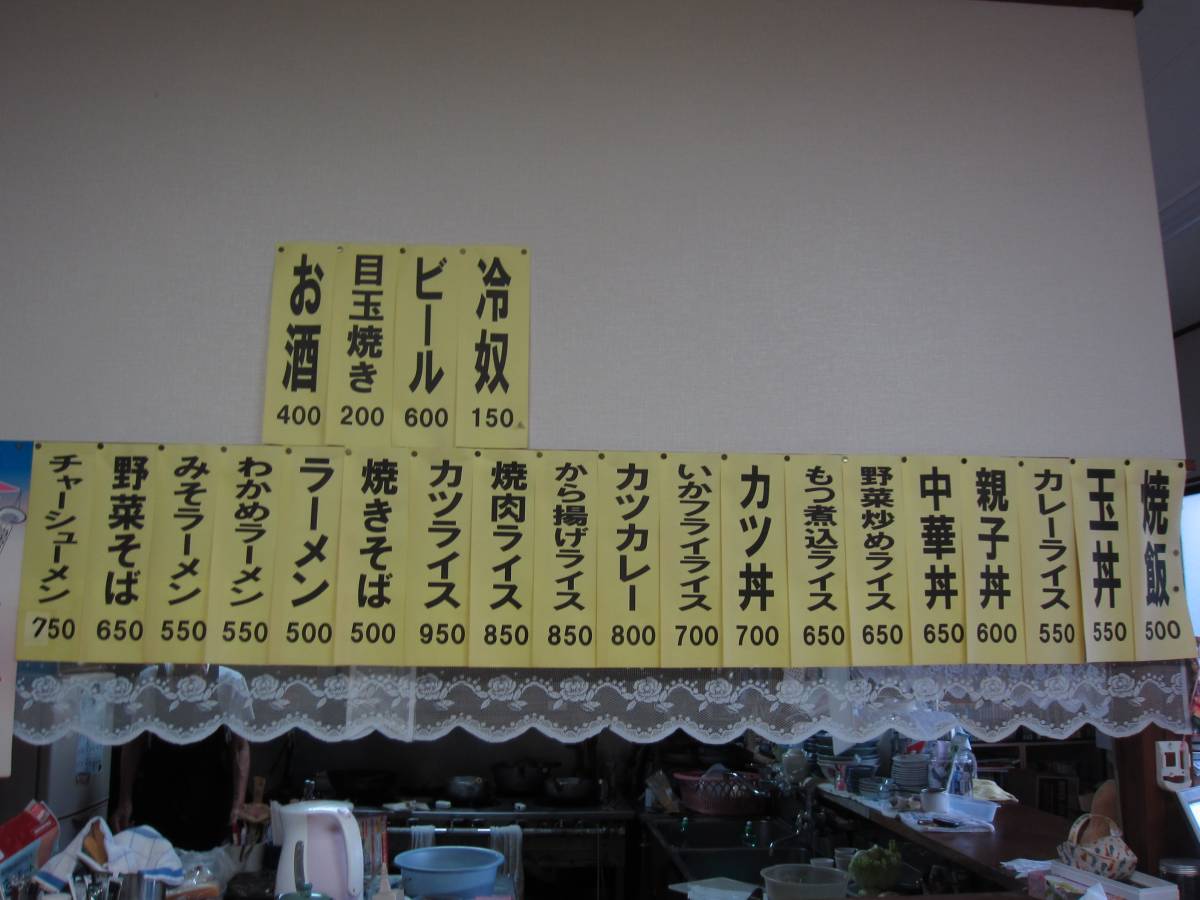 冷奴
150
ビール
600
目玉焼き
200
お酒
400
焼飯
500
玉丼
550
カレーライス
550
親子丼
600
中華丼
650
野菜炒めライス
650
もつ煮込ライス
650
カツ丼
700
いかフライライス
700
カツカレー
800
から揚げライス
850
焼肉ライス
850
カツライス
950
焼きそば
500
ラーメン
500
わかめラーメン
550
みそラーメン
550
野菜そば
650
チャーシューメン
750